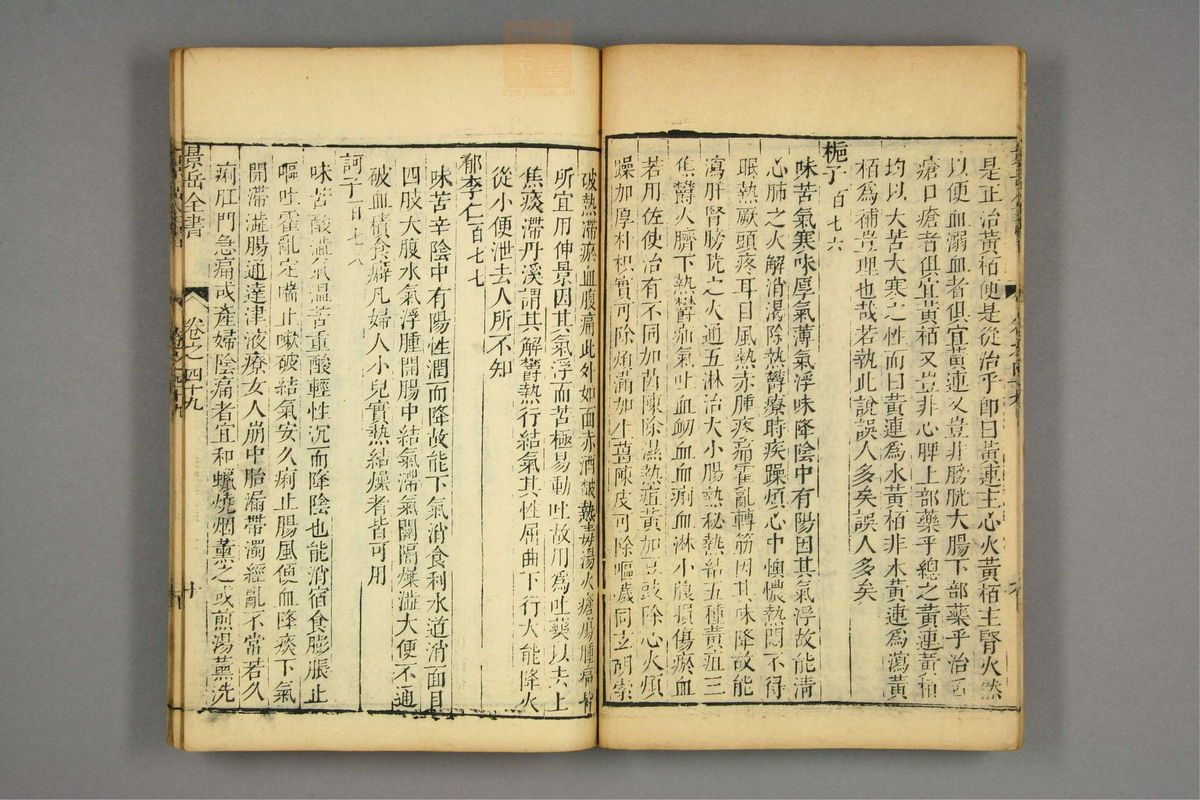 是正治黃栢便是從治乎即曰黃連主心火黃栢主腎火然
以便血溺血者俱宜黃連又豈非膀胱大腸下部藥乎治舌
瘡口瘡者俱宜黃栢又豈非心脾上部藥乎總之黃連黃栢
均以大苦大寒之性而曰黃連為水黃栢非水黃連為瀉黃
栢為補豈理也哉若執此說誤人多矣誤人多矣
梔子百七六
味苦氣寒味厚氣薄氣浮味降陰中有陽因其氣浮故能清
心肺之火解消渴除熱欝療時疾躁煩心中懊憹熱悶不得
眠熱厥頭疼耳目風熱赤腫疼痛霍亂轉筋因其味降故能
瀉肝腎膀胱之火通五淋治大小腸熱秘熱結五種黃疸三
焦欝火臍下熱欝疝氣吐血衄血血痢血淋小腹損傷瘀血
若用佐使治有不同加茵陳除濕熱疸黃加豆豉除心火煩
躁加厚朴枳實可除煩滿加生薑陳皮可除嘔噦同玄胡索
破熱滯瘀血腹痛此外如面赤酒皶熱毒湯火瘡瘍腫痛皆
所宜用仲景因其氣浮而苦極易動吐故用為吐藥以去上
焦痰滯丹溪謂其解欝熱行結氣其性屈曲下行大能降火
從小便泄去人所不知
郁李仁百七七
味苦辛陰中有陽性潤而降故能下氣消食利水道消面目
四肢大腹水氣浮腫開腸中結氣滯氣關隔燥澁大便不通
破血積食癖凡婦人小兒實熱結燥者皆可用
訶子百七八
味苦酸澁氣溫苦重酸輕性沉而降陰也能消宿食膨脹止
嘔吐霍亂定喘止嗽破結氣安久痢止腸風便血降痰下氣
開滯澁腸通達津液療女人崩中胎漏帶濁經亂不常若久
痢肛門急痛或產婦陰痛者宜和蠟燒烟薰之或煎湯薰洗
景岳全書
卷之四十九
十